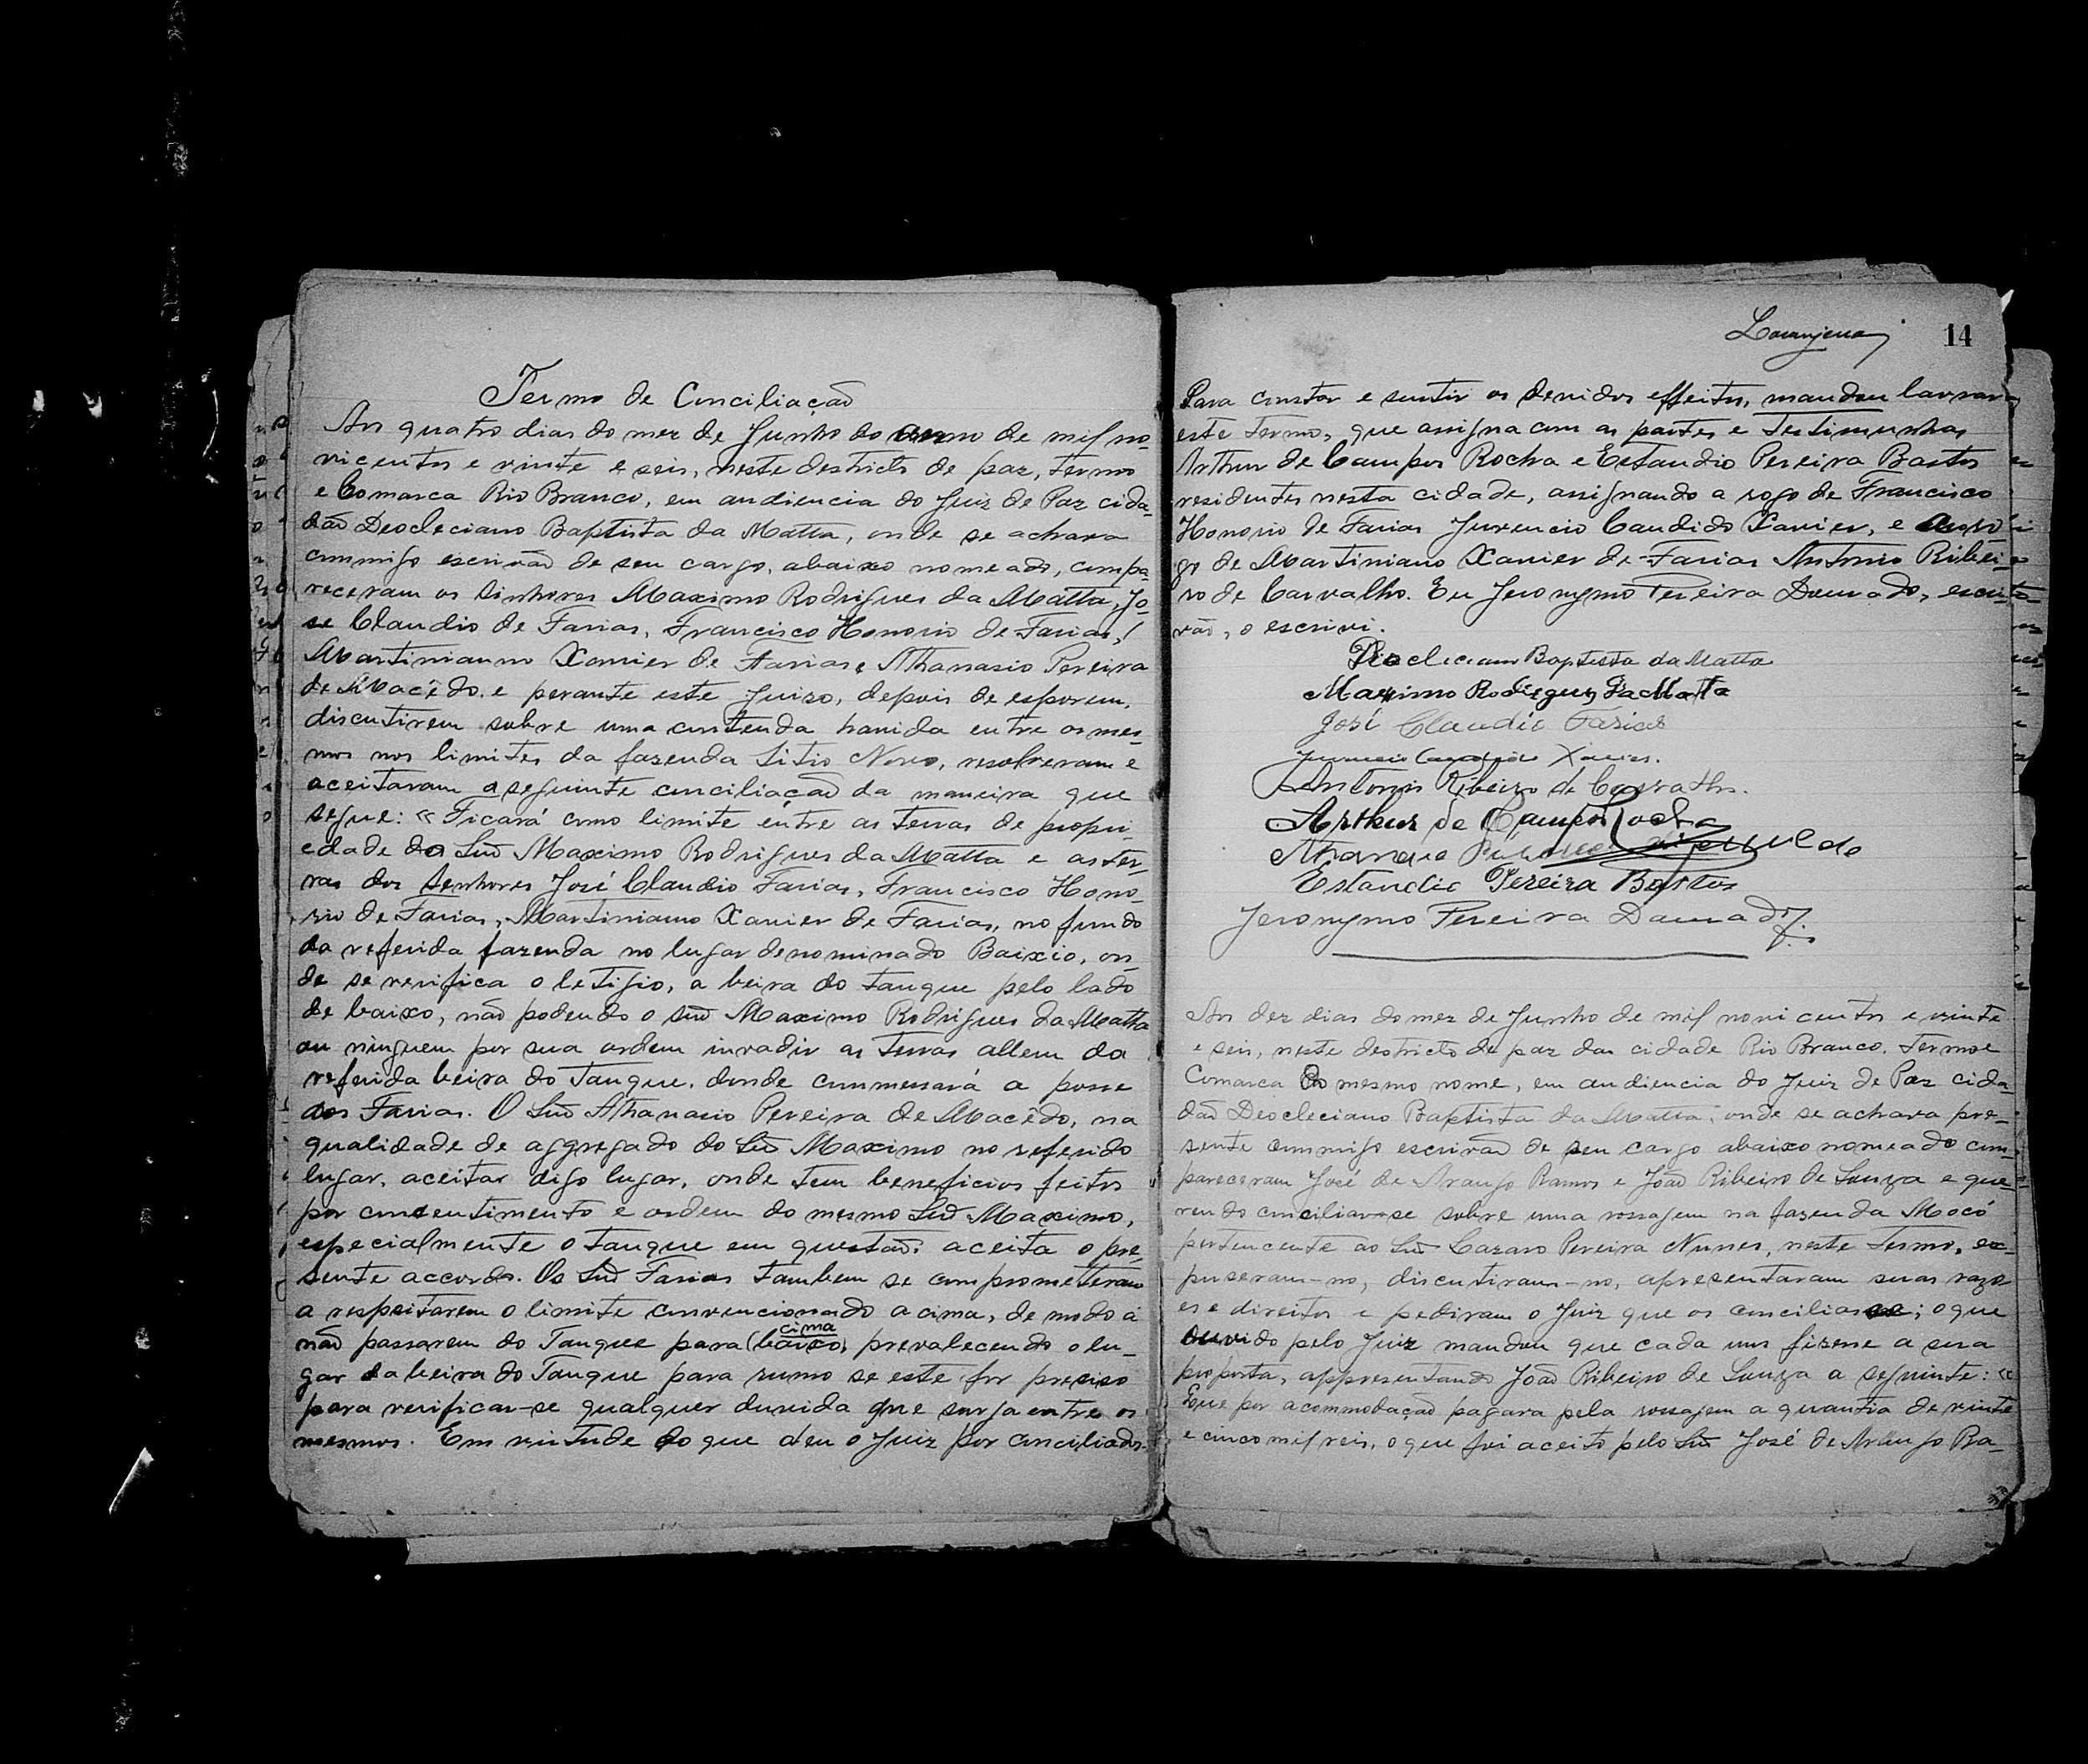 Termo de Conciliação
Aos quatro dias do mez de Junho do anno de mil no-
vicentos e vinte e seis, neste destricto de paz, termo
e Comarca Rio Branco, em audiencia do Juiz de Paz cida-
dão Deocleciano Baptista da Matta, onde se achava
commigo escrivão de seu cargo, abaixo nomeado, compa-
receram os Sinhores Maximo Rodrigues da Matta, Jo-
se Claudio de Farias, Francisco Honorio de Farias,
Martinianno Xavier de Farias e Athanasio Pereira
de Macêdo, e perante este Juizo, depois de esporem,
discutirem sobre uma contenda havida entre os mes-
mos nos limites da fazenda Sitio Novo, resolveram e
aceitaram a seguinte conciliação da maneira que
segue: « Ficará como limite entre as terras de propri-
edade do Snr̃ Maximo Rodrigues da Matta e as ter-
ras dos Senhores José Claudio Farias, Francisco Hono-
rio de Farias, Martiniano Xavier de Farias, no fundo
da referida fazenda no lugar denominado Baixio, on-
de se verifica o letigio, a beira do tanque pelo lado
de baixo, não podendo o snr̃ Maximo Rodrigues da Matta
ou ninguem por sua ordem invadir as terras allem da
referida beira do Tanque, donde commessará a posse
dos Farias. O Snr̃ Athanasio Pereira de Macêdo, na
qualidade de aggregado do Snr̃ Maximo no referido
lugar, aceitar digo lugar, onde tem beneficios feitos
por consentimento e ordem do mesmo Snr̃ Maximo,
especialmente o tanque em questão: aceita o pre-
sente accordo. Os Snr̃ Farias tambem se comprometteram
a respeitarem o limite convencionado acima, de modo á
cima
não passarem do Tanque para (baixo) prevalecendo o lu-
gar da beira do Tanque para rumo se este for preciso
para verificar-se qualquer duvida que surja entre os
mesmos. Em virtude do que deu o Juiz por conciliados.
Laranjeira
14
Para constar e surtir os devidos effeitos, mandou lavrar
este Termo, que assigna com as partes e Testimunhas
Arthur de Campos Rocha e Estandio Pereira Bastos
residentes nesta cidade, assignando a rogo de Francisco
Honorio de Farias Juvencio Candido Xavier, e a ro-
go de Martiniano Xavier de Farias Antonio Ribei-
ro de Carvalho. Eu Jeronymo Pereira Dourado, escri-
vão, o escrivi.
Deocleciano Baptista da Matta
Maximo Rodrigues da Matta
José Claudio Farias
Juvencio Candido Xavier.
Antonio Ribeiro de Carvalho.
Arthur de Campos Rocha
Athanasio Macedo
Estandio Pereira Bastos
Jeronymo Pereira Dourado
Aos dez dias do mez de Junho de mil novicentos e vinte
e seis, neste destricto de paz da cidade Rio Branco. Termo e
Comarca do mesmo nome, em audiencia do Juiz de Paz cida-
dão Deocleciano Baptista da Matta, onde se achava pre-
sente commigo escrivão de seu cargo abaixo nomeado com-
pareceram José de Araujo Ramos e João Ribeiro de Souza e que-
rendo conciliar-se sobre uma rossagem na fazenda Mocó
pertencente ao Snr̃ Lazaro Pereira Nunes, neste Termo, ex-
puseram-no, discutiram-no, apresentaram suas razo-
es e direitos e pediram o Juiz que os conciliasse; o que
ouvido pelo Juiz mandou que cada um fizesse a sua
proposta, appresentando João Ribeiro de Souza a seguinte: «
Que por acommodação pagara pela rossagem a quantia de vinte
e cinco mil reis, o que foi aceito pelo Snr̃ José de Araujo Ra-